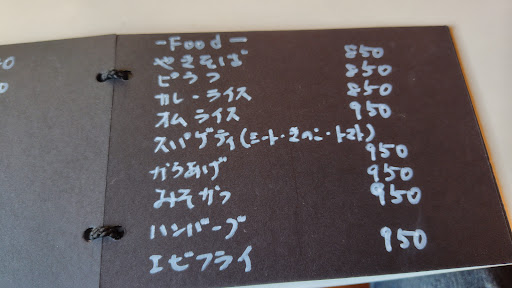 -Food-
やきそば 850
ピラフ 850
カレーライス 850
オムライス 950
スパゲティ(ミート・きのこ・トマト)
950
からあげ 950
みそかつ 950
ハンバーグ 950
エビフライ